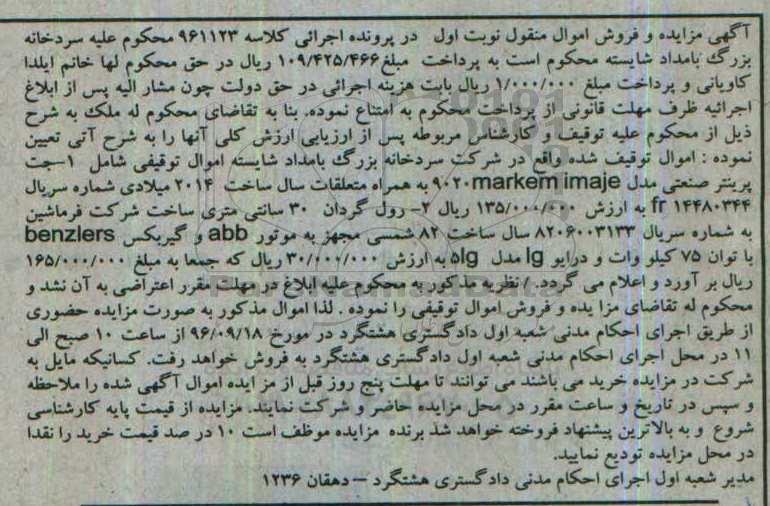 آگهی مزایده و فروش اموال منقول نوبت اول در پرونده اجرائی کلاسه ۹۶۱۱۲۳ محکوم علیه سردخانه
بزرگ بامداد شایسته محکوم است به پرداخت مبلغ ۱۰۹/۴۲۵/۴۶۶ ریال در حق محکوم لها خانم ایلدا
کاویانی و پرداخت مبلغ ۱/۰۰۰/۰۰۰ ریال بابت هزینه اجرائی در حق دولت چون مشار الیه پس از ابلاغ
اجرائیه ظرف مهلت قانونی از پرداخت محکوم به امتناع نموده. بنا به تقاضای محکوم له ملک به شرح
ذیل از محکوم علیه توقیف. کارشناس مربوطه پس از ارزیابی ارزش کلی آنها را به شرح آتی تعیین
نموده : اموال توقیف شده واقع در شرکت سردخانه بزرگ بامداد شایسته اموال توقیفی شامل ۱-جت
پرینتر صنعتی مدل markem imaje ۹۰۲۰ به همراه متعلقات سال ساخت ۲۰۱۴ میلادی شماره سریال
fr ۱۴۴۸۰۳۴۴ به ارزش ۱۳۵/۰۰۰/۰۰۰ ریال ۲- رول گردان ۳۰ سانتی متری ساخت شرکت فرماشین
به شماره سریال ۸۲۰۶۰۰۳۱۳۳ سال ساخت ۸۲ شمسی مجهز به موتور abb و گیربکس benzlers
با توان ۷۵ کیلو وات و درایو lg مدل ۵lg به ارزش ۳۰/۰۰۰/۰۰۰ ریال که جمعا به مبلغ ۱۶۵/۰۰۰/۰۰۰
ریال بر آورد و اعلام می گردد. / نظریه مذکور به محکوم علیه ابلاغ در مهلت مقرر اعتراضی به آن نشد و
محکوم له تقاضای مزا یده و فروش اموال توقیفی را نموده . لذا اموال مذکور به صورت مزایده حضوری
از طریق اجرای احکام مدنی شعبه اول دادگستری هشتگرد در مورخ ۹۶/۰۹/۱۸ از ساعت ۱۰ صبح الی
۱۱ در محل اجرای احکام مدنی شعبه اول دادگستری هشتگرد به فروش خواهد رفت. کسانیکه مایل به
شرکت در مزایده خرید می باشند می توانند تا مهلت پنج روز قبل از مز ایده اموال آگهی شده را ملاحظه
و سپس در تاریخ و ساعت مقرر در محل مزایده حاضر و شرکت نمایند. مزایده از قیمت پایه کارشناسی
شروع و به بالاترین پیشنهاد فروخته خواهد شد برنده مزایده موظف است ۱۰ در صد قیمت خرید را نقدا
در محل مزایده تودیع نمایید.
مدیر شعبه اول اجرای احکام مدنی دادگستری هشتگرد – دهقان ۱۲۳۶